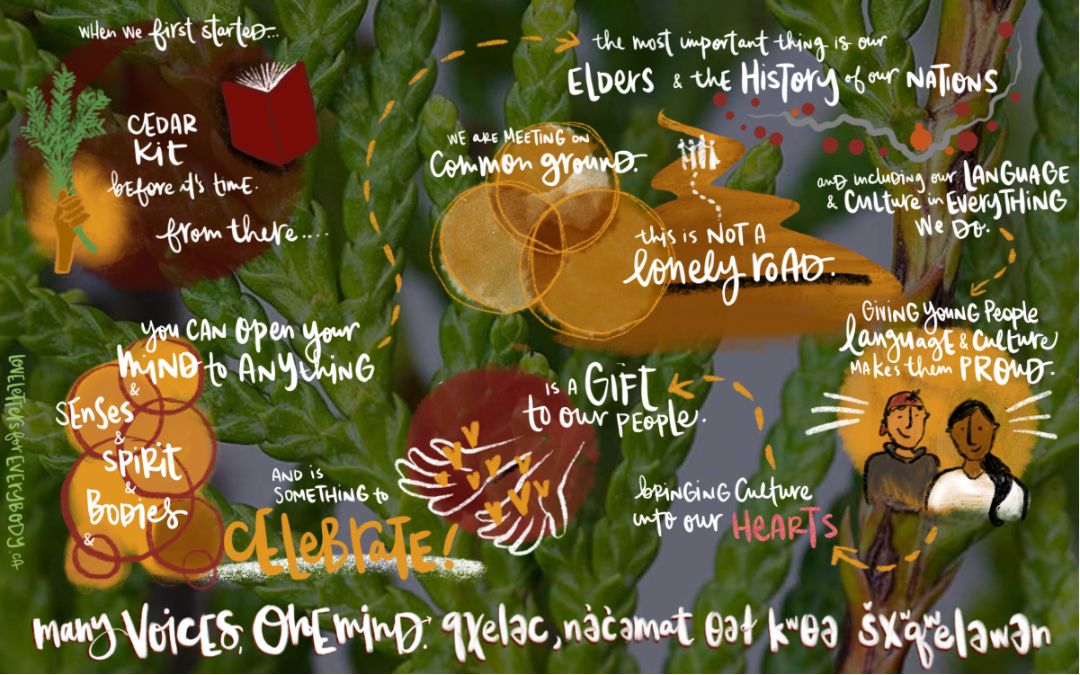 when we first started...
CEDAR
KIT
before it's time.
from there....
you CAN open your
MIND to ANYTHING
&
SENSES
&
SPIRIT
&
BODIES
&
the most important thing is our
ELDERS & the HISTORY of our NATIONS
and including our LANGUAGE
& CULTURE in EVERYTHING
WE DO.
WE ARE MEETING ON
COMMON GROUND.
this is NOT A
lonely ROAD.
GIVING YOUNG PEOPLE
LANGUAGE & CULTURE
MAKES them PROUD.
bringing Culture
into our HEARTS
IS A GIFT
to our PEOPLE.
AND IS
SOMETHING to
CELEBRATE!
many VOICES, ONE MIND. qχeləc, nə̀c̀əmat θəɬ kʷθə šxʷqʷeləwən
LOVELETTERS for EVERYBODY.CA